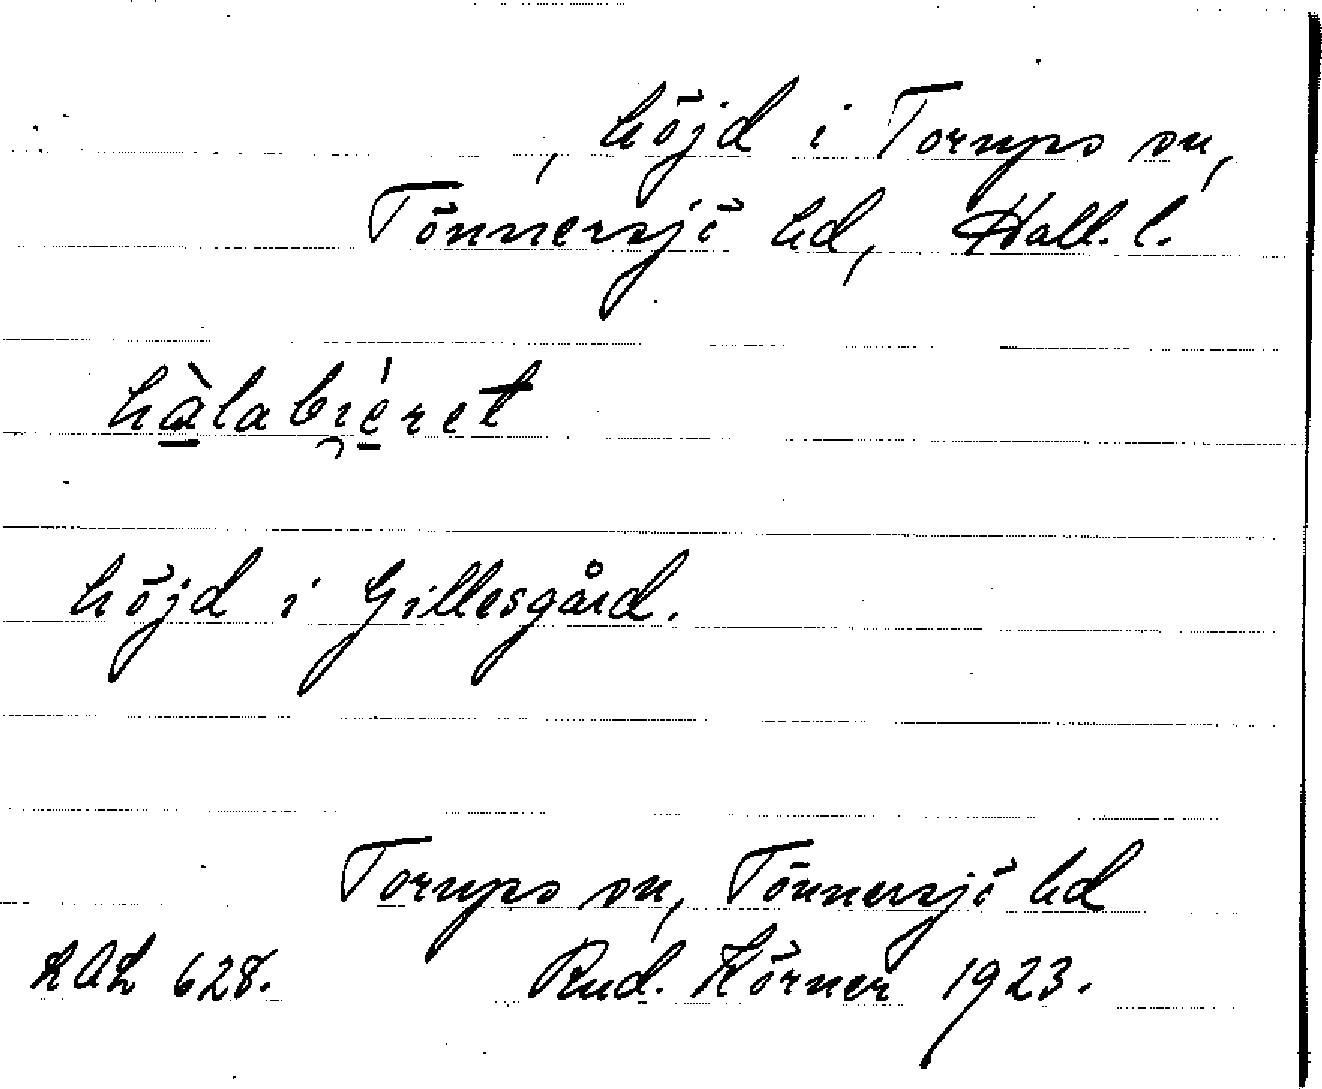 , höjd i Torups sn,
Tönnersjö hd, Hall. l.
hàlabi̯éret
höjd i Gillesgård.
Torups sn, Tönnersjö hd
LAL 628. Rud. Körner 1923.